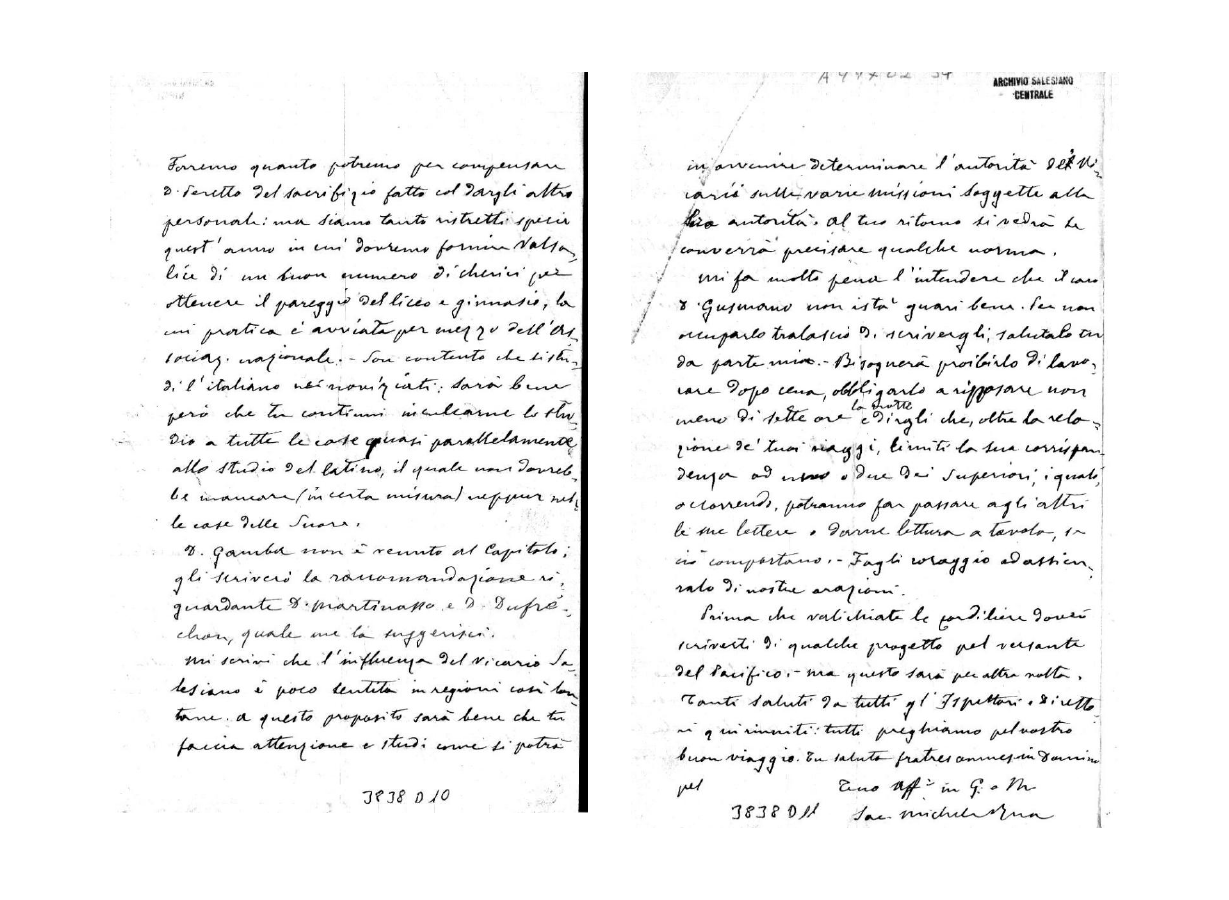 Faremo quanto potremo per compensare
D. Peretto del sacrifizio fatto col dargli altro
personale: ma siamo tanto ristretti specie
quest'anno in cui dovremo fornire Valsa-
lice di un buon numero di cherici per
ottenere il pareggio del liceo e ginnasio, la
cui pratica è avviata per mezzo dell'As-
sociaz. nazionale. - Son contento che si stu-
di l'italiano nei noviziati: sarà bene
però che tu continui inculcarne lo stu-
dio a tutte le case quasi parallelamente
allo studio del latino, il quale non dovreb-
be mancare (in certa misura) neppur nel-
le case delle Suore.
D. Gamba non è venuto al Capitolo;
gli scriverò la raccomandazione ri-
guardante D. Martinasso e D. Dufré-
chou, quale me la suggerisci.
Mi scrivi che l'influenza del Vicario Sa-
lesiano è poco sentita in regioni così lon-
tane. A questo proposito sarà bene che tu
faccia attenzione e studi come si potrà
3838 D 10
ARCHIVIO SALESIANO
CENTRALE
in avvenire determinare l'autorità del Vi-
carii sulle varie missioni soggette alla
autorità. Al tuo ritorno si vedrà se
converrà precisare qualche norma.
Mi fa molto pena l'intendere che il caro
D. Gusmano non istà guari bene. Per non
occuparlo tralascio di scrivergli, salutalo tu
da parte mia. - Bisognerà proibirlo di lavo-
rare dopo cena, obbligarlo a riposare non
meno di sette ore la notte e dirgli che, oltre la rela-
zione de' tuoi viaggi, limiti la sua corrispon
denza ad uno o due dei Superiori, i quali,
occorrendo, potranno far passare agli altri
le sue lettere o darne lettura a tavola, se
ciò comportano. - Fagli coraggio ed assicu-
ralo di nostre orazioni.
Prima che valichiate le cordiliere dovrò
scriverti di qualche progetto pel versante
del Pacifico; - ma questo sarà per altra volta.
Tanti saluti da tutti gl'Ispettori e Diretto-
ri qui riuniti: tutti preghiamo pel vostro
buon viaggio. Tu saluta fratres omnes in Domino
pel
Tuo aff.º in G. e M.
Sac. Michele Rua
3838 D 11